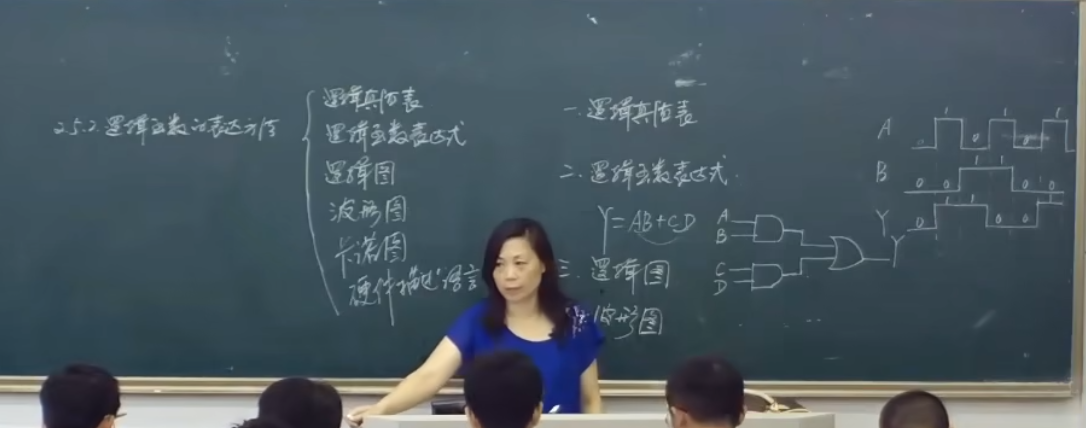 2.5.2 逻辑函数的表达方法
逻辑真值表
逻辑函数表达式
逻辑图
波形图
卡诺图
硬件描述语言
一.逻辑真值表
二.逻辑函数表达式.
Y=AB+CD
三.逻辑图
波形图
A
B
C
D
Y
A 0 1 0 1 0 1
B 0 0 1 1 0 0
Y 0 1 1 0 0 1